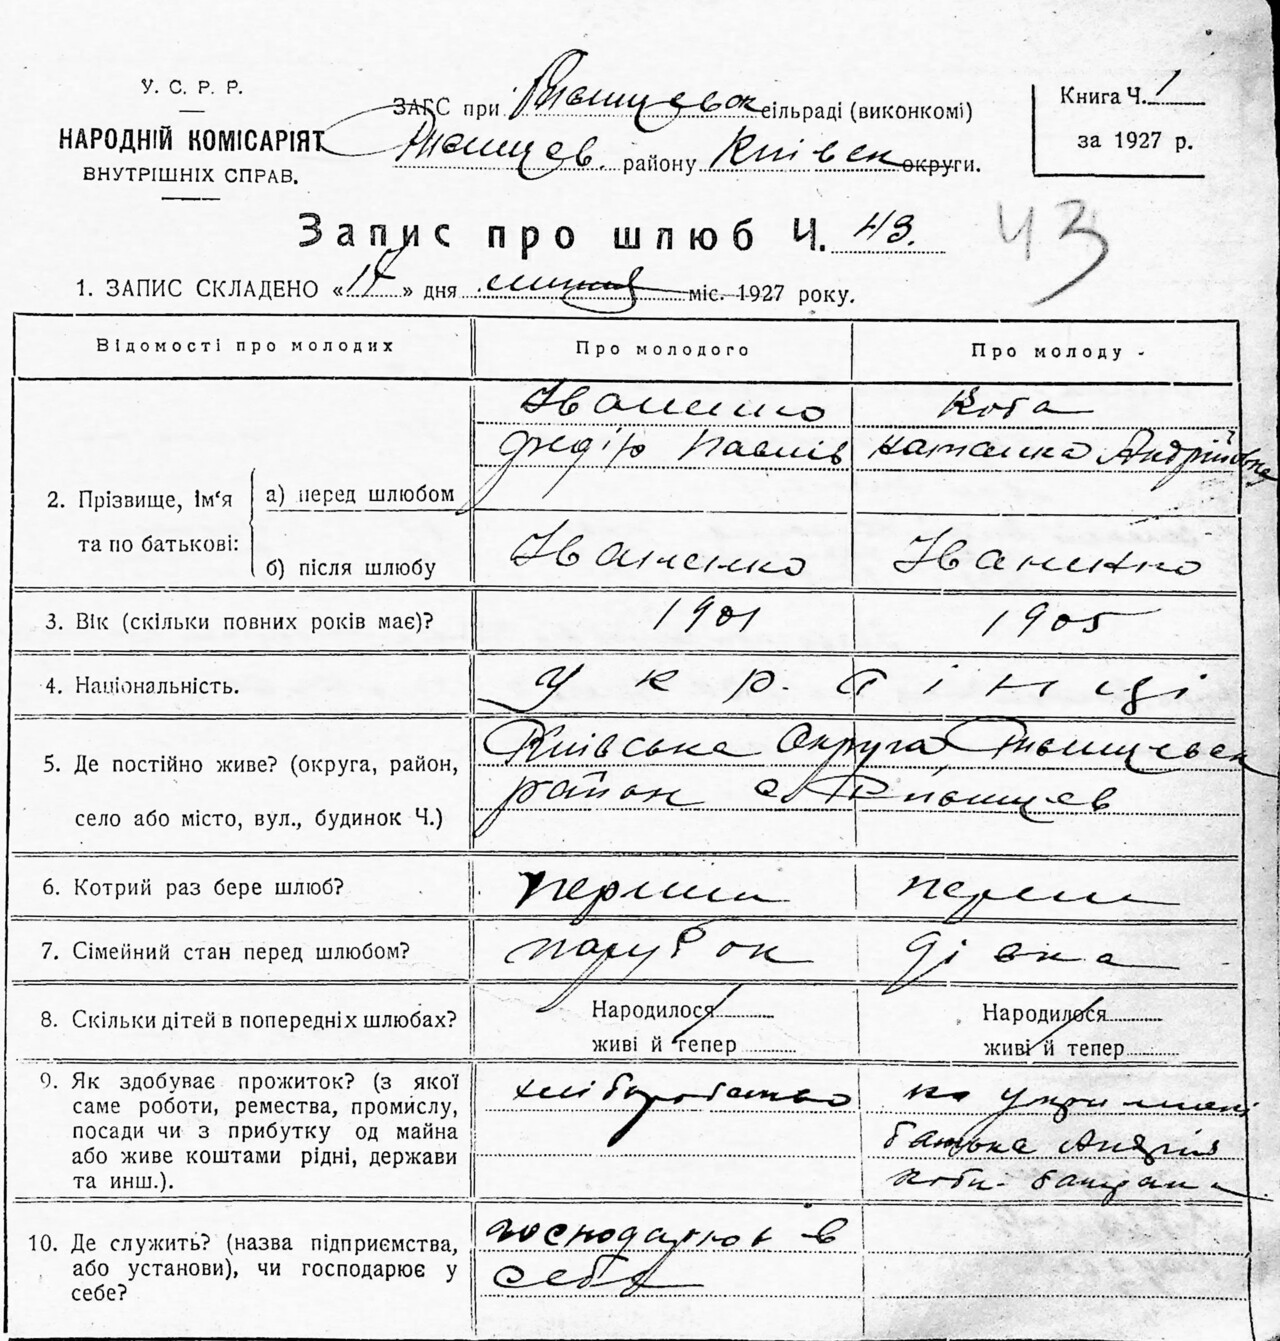 У. С. Р. Р.
НАРОДНІЙ КОМІСАРІЯТ
ВНУТРІШНІХ СПРАВ.
ЗАГС при Ржищевск сільраді (виконкомі)
Ржищев. району Київск округи.
Книга Ч. 1
за 1927 р.
Запис про шлюб Ч. 43.
43
1. ЗАПИС СКЛАДЕНО « » дня міс. 1927 року.
Відомості про молодих Про молодого Про молоду
Іваненко Коба
Федір Павлів Наталка Андріївна
2. Прізвище, ім'я а) перед шлюбом
та по батькові:
б) після шлюбу Іваненко Іваненко
3. Вік (скільки повних років має)? 1901 1905
4. Національність. Українці
5. Де постійно живе? (округа, район, Київська Округа Ржищевск
село або місто, вул., будинок Ч.) район с Ржищев
6. Котрий раз бере шлюб? перший перш
7. Сімейний стан перед шлюбом? парубок дівка
8. Скільки дітей в попередніх шлюбах? Народилося Народилося
живі й тепер живі й тепер
9. Як здобуває прожиток? (з якої хліборобство на утриманні
саме роботи, ремества, промислу,
посади чи з прибутку од майна батька Андрія
або живе коштами рідні, держави
та инш.). Коби
10. Де служить? (назва підприємства, господарює в
або установи), чи господарює у себе
себе?